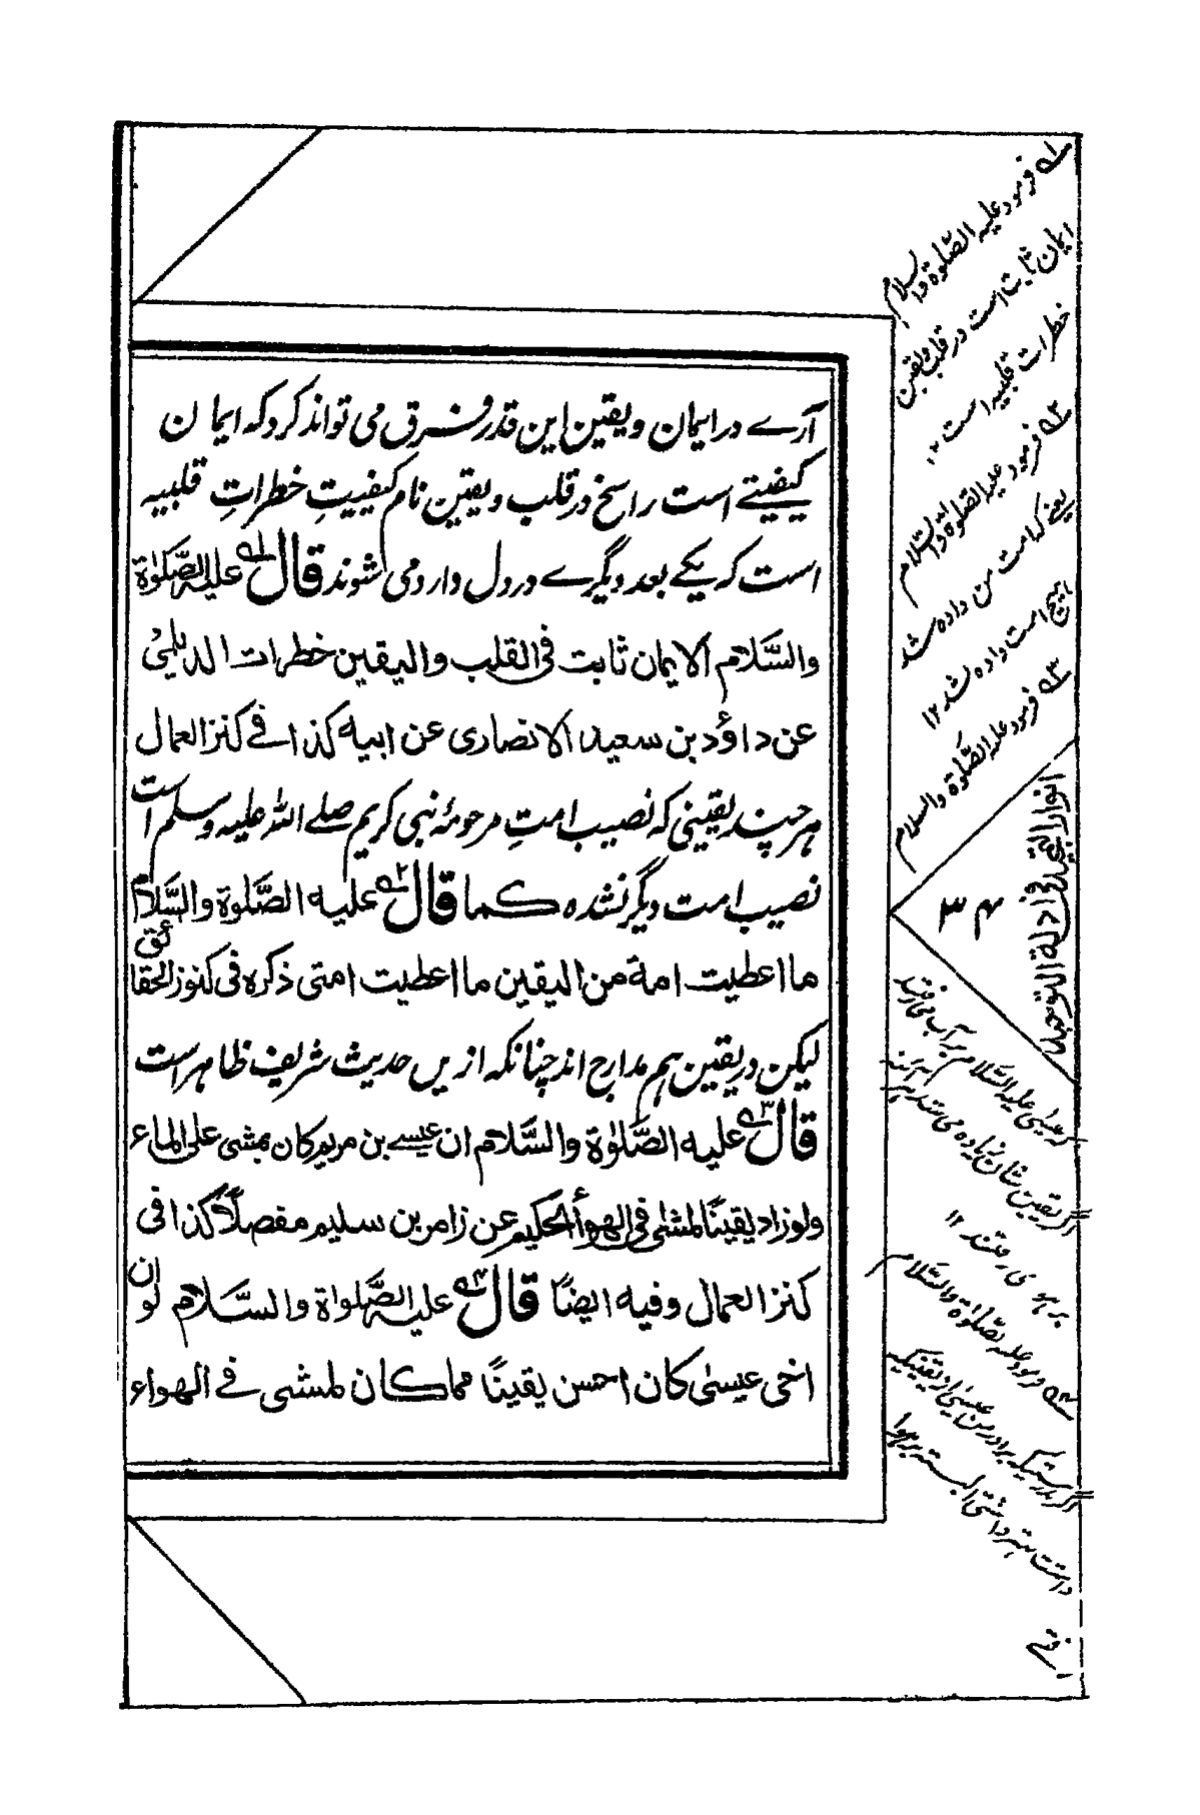 آرے در ایمان و یقین این قدر فرق می تواند کرد که ایمان
کیفیتے است راسخ در قلب و یقین نام کیفیتِ خطراتِ قلبیه
است که یکے بعد دیگرے در دل دارد می شوند قال ؎۱ علیه الصَّلوٰة
والسَّلام الایمان ثابت فی القلب والیقین خطرات الدیلمیُ
عن داؤد بن سعید الانصاری عن ابیه کذا فے کنز العمال
هر چند یقینی که نصیب امتِ مرحومۂ نبی کریم صلے اللّٰہ علیه وسلم است
نصیب امت دیگر نشده کما قال ؎۲ علیه الصَّلوٰة والسَّلام
ما اعطیت امة من الیقین ما اعطیت امتی ذکره فی کنوز الحقائق
لیکن در یقین هم مدارج اند چنانکه ازیں حدیث شریف ظاهر است
قال ؎۳ علیه الصَّلوٰة والسَّلام ان عیسے بن مریم کان یمشی علی الماء
ولو زاد یقینًا لمشیٰ فی الهوأ الحکیم عن زامر بن سلیم مفصلاً کذا فی
کنز العمال وفیه ایضًا قال ؎۴ علیه الصَّلواة والسَّلام لو ان
اخی عیسیٰ کان احسن یقینًا مما کان لمشی فے الهواء
؎۱ فرمود علیه الصَّلوٰة والسلام
ایمان ثابت است در قلب و یقین
خطرات قلبیه است ۱۲
؎۲ فرمود علیه الصلوٰة والسَّلام
امت من داده شد
داده شد ۱۲
؎۳ فرمود علیه الصَّلوٰة والسلام
انوار التمجید فی ادلة التوحید
۳۴
عیسیٰ علیه السَّلام بر آب می رفتند
اگر یقین شان زیاده می شد
بر هوا می رفتند ۱۲
؎۴ فرمود علیه الصَّلوٰة والسَّلام
برادر من عیسیٰ از یقینیکه
داشت بهتر داشتی البته بر هوا
رفتے